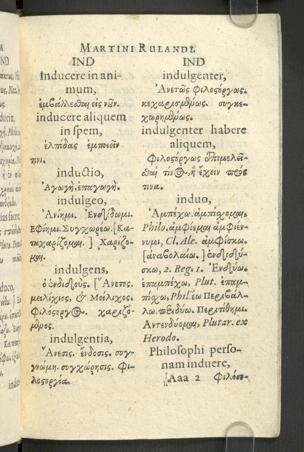 MARTINI RULANDI
IND
Inducere in ani-
mum,
ἐμβάλλεσθαι εἰς νοῦν.
inducere aliquem
in spem,
ἐλπίδας ἐμποιεῖν
τινί.
inductio,
Ἀγωγή. ἐπαγωγή.
indulgeo,
Ἀνίημι. Ἐνδίδωμι.
Ἐφίημι. Συγχωρέω. [Κα-
ταχαρίζομαι.] Χαρίζο-
μαι.
indulgens,
ὁ ἐνδιδούς. [Ἀνετὸς.
μειλίχιος, & Μείλιχος.
Φιλόστοργος. χαριζό-
μενος.
indulgentia,
Ἄνεσις. ἔνδοσις. συγ-
γνώμη. συγχώρησις. φι-
λοστοργία.
IND
indulgenter,
Ἀνετῶς. Φιλοστόργως.
κεχαρισμένως. συγκε-
χωρημένως.
indulgenter habere
aliquem,
Φιλοστόργως ἐπιμελεῖ-
σθαί τινος. ἢ ἔχειν πρός
τινα.
induo,
Ἀμπέχω. ἀμπίσχομαι,
Philo. ἀμφίεμαι ἀμφιέν-
νυμι, Cl. Ale. ἀμφίσκω.
] ἐνδιδύ-
σκω, 2. Reg. 1. Ἐνδύω.
ἐπαμπέχω, Plut. ἐπαμ-
πίσχω, Phil. Περιβάλ-
λω. Περιτίθημι.
Ἀντενδύομαι, Plutar. ex
Herodo.
Philosophi perso-
nam induere,
[Aaa 2 Φιλόσο-